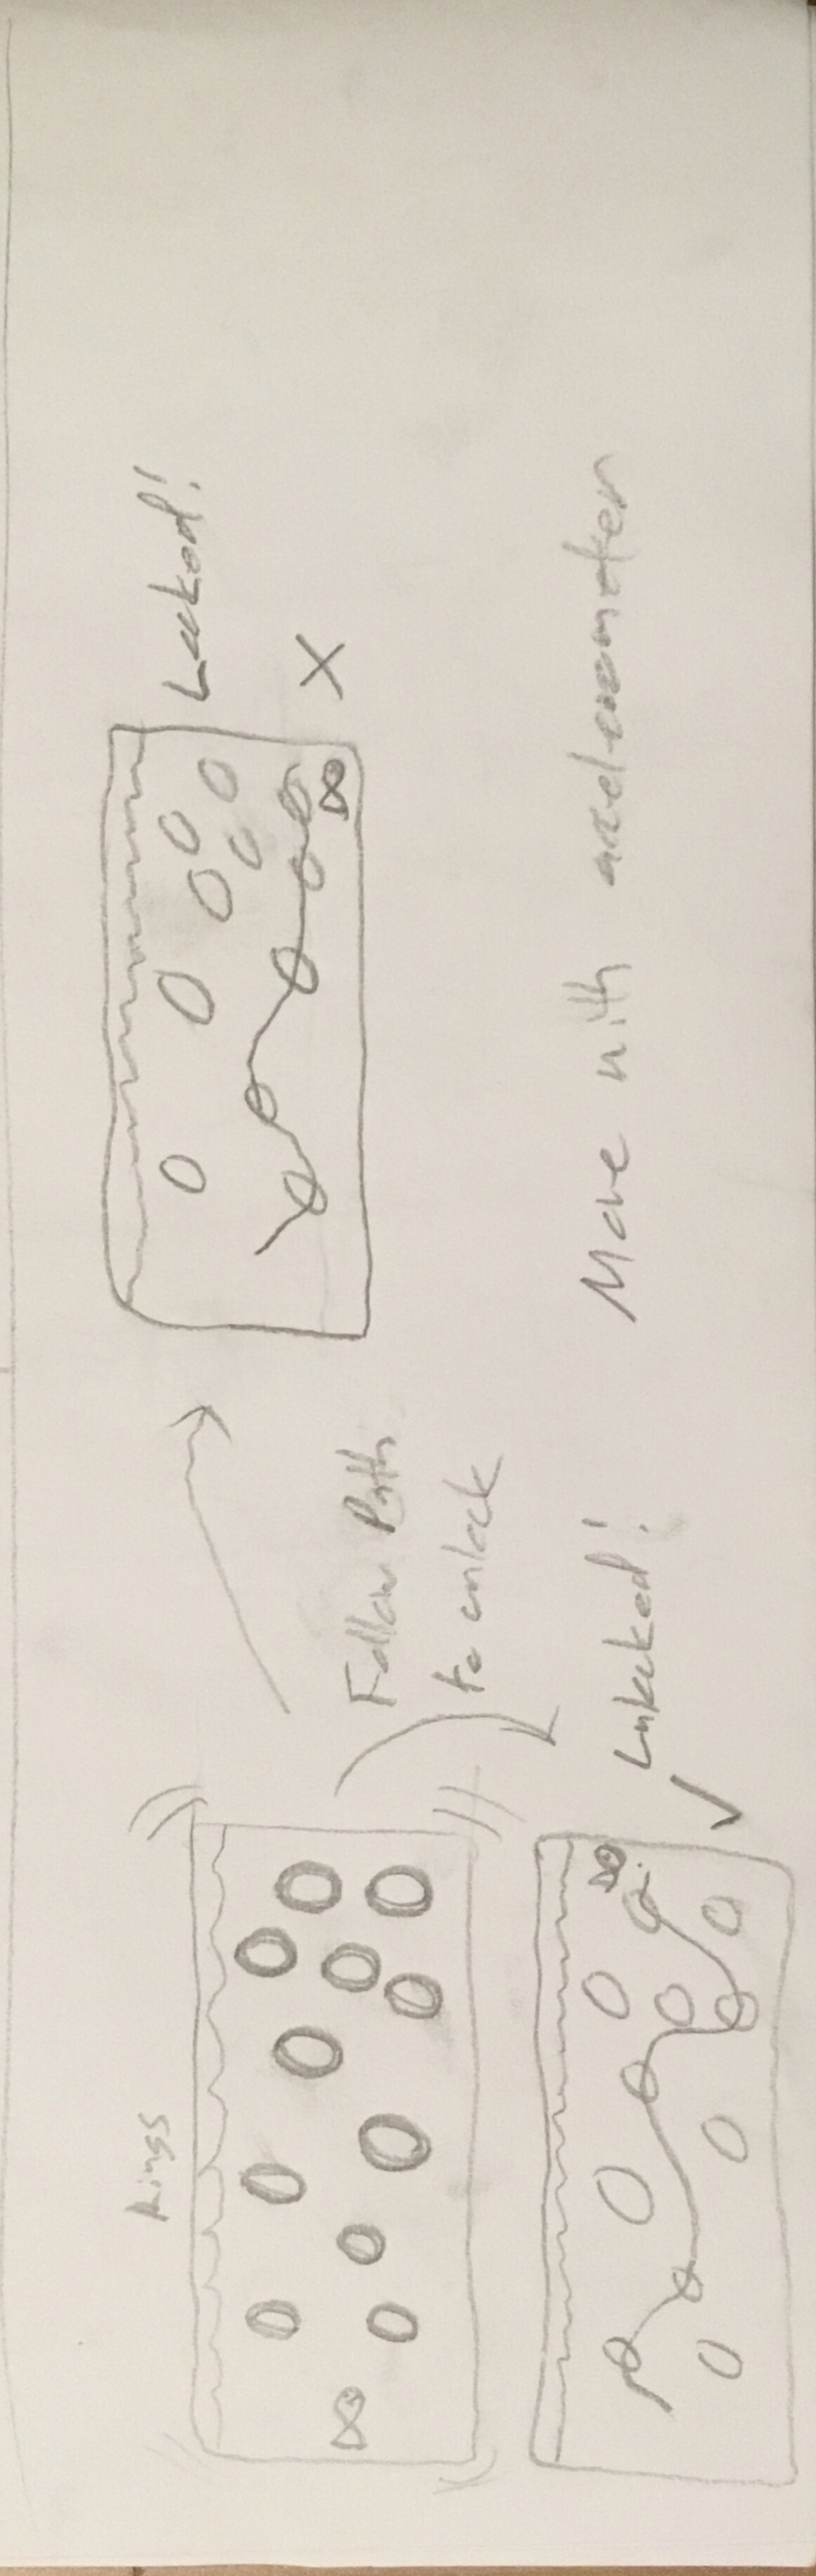 Rings
Follow Path
to unlock
Locked!
X
Unlocked!
Move with accelerometer